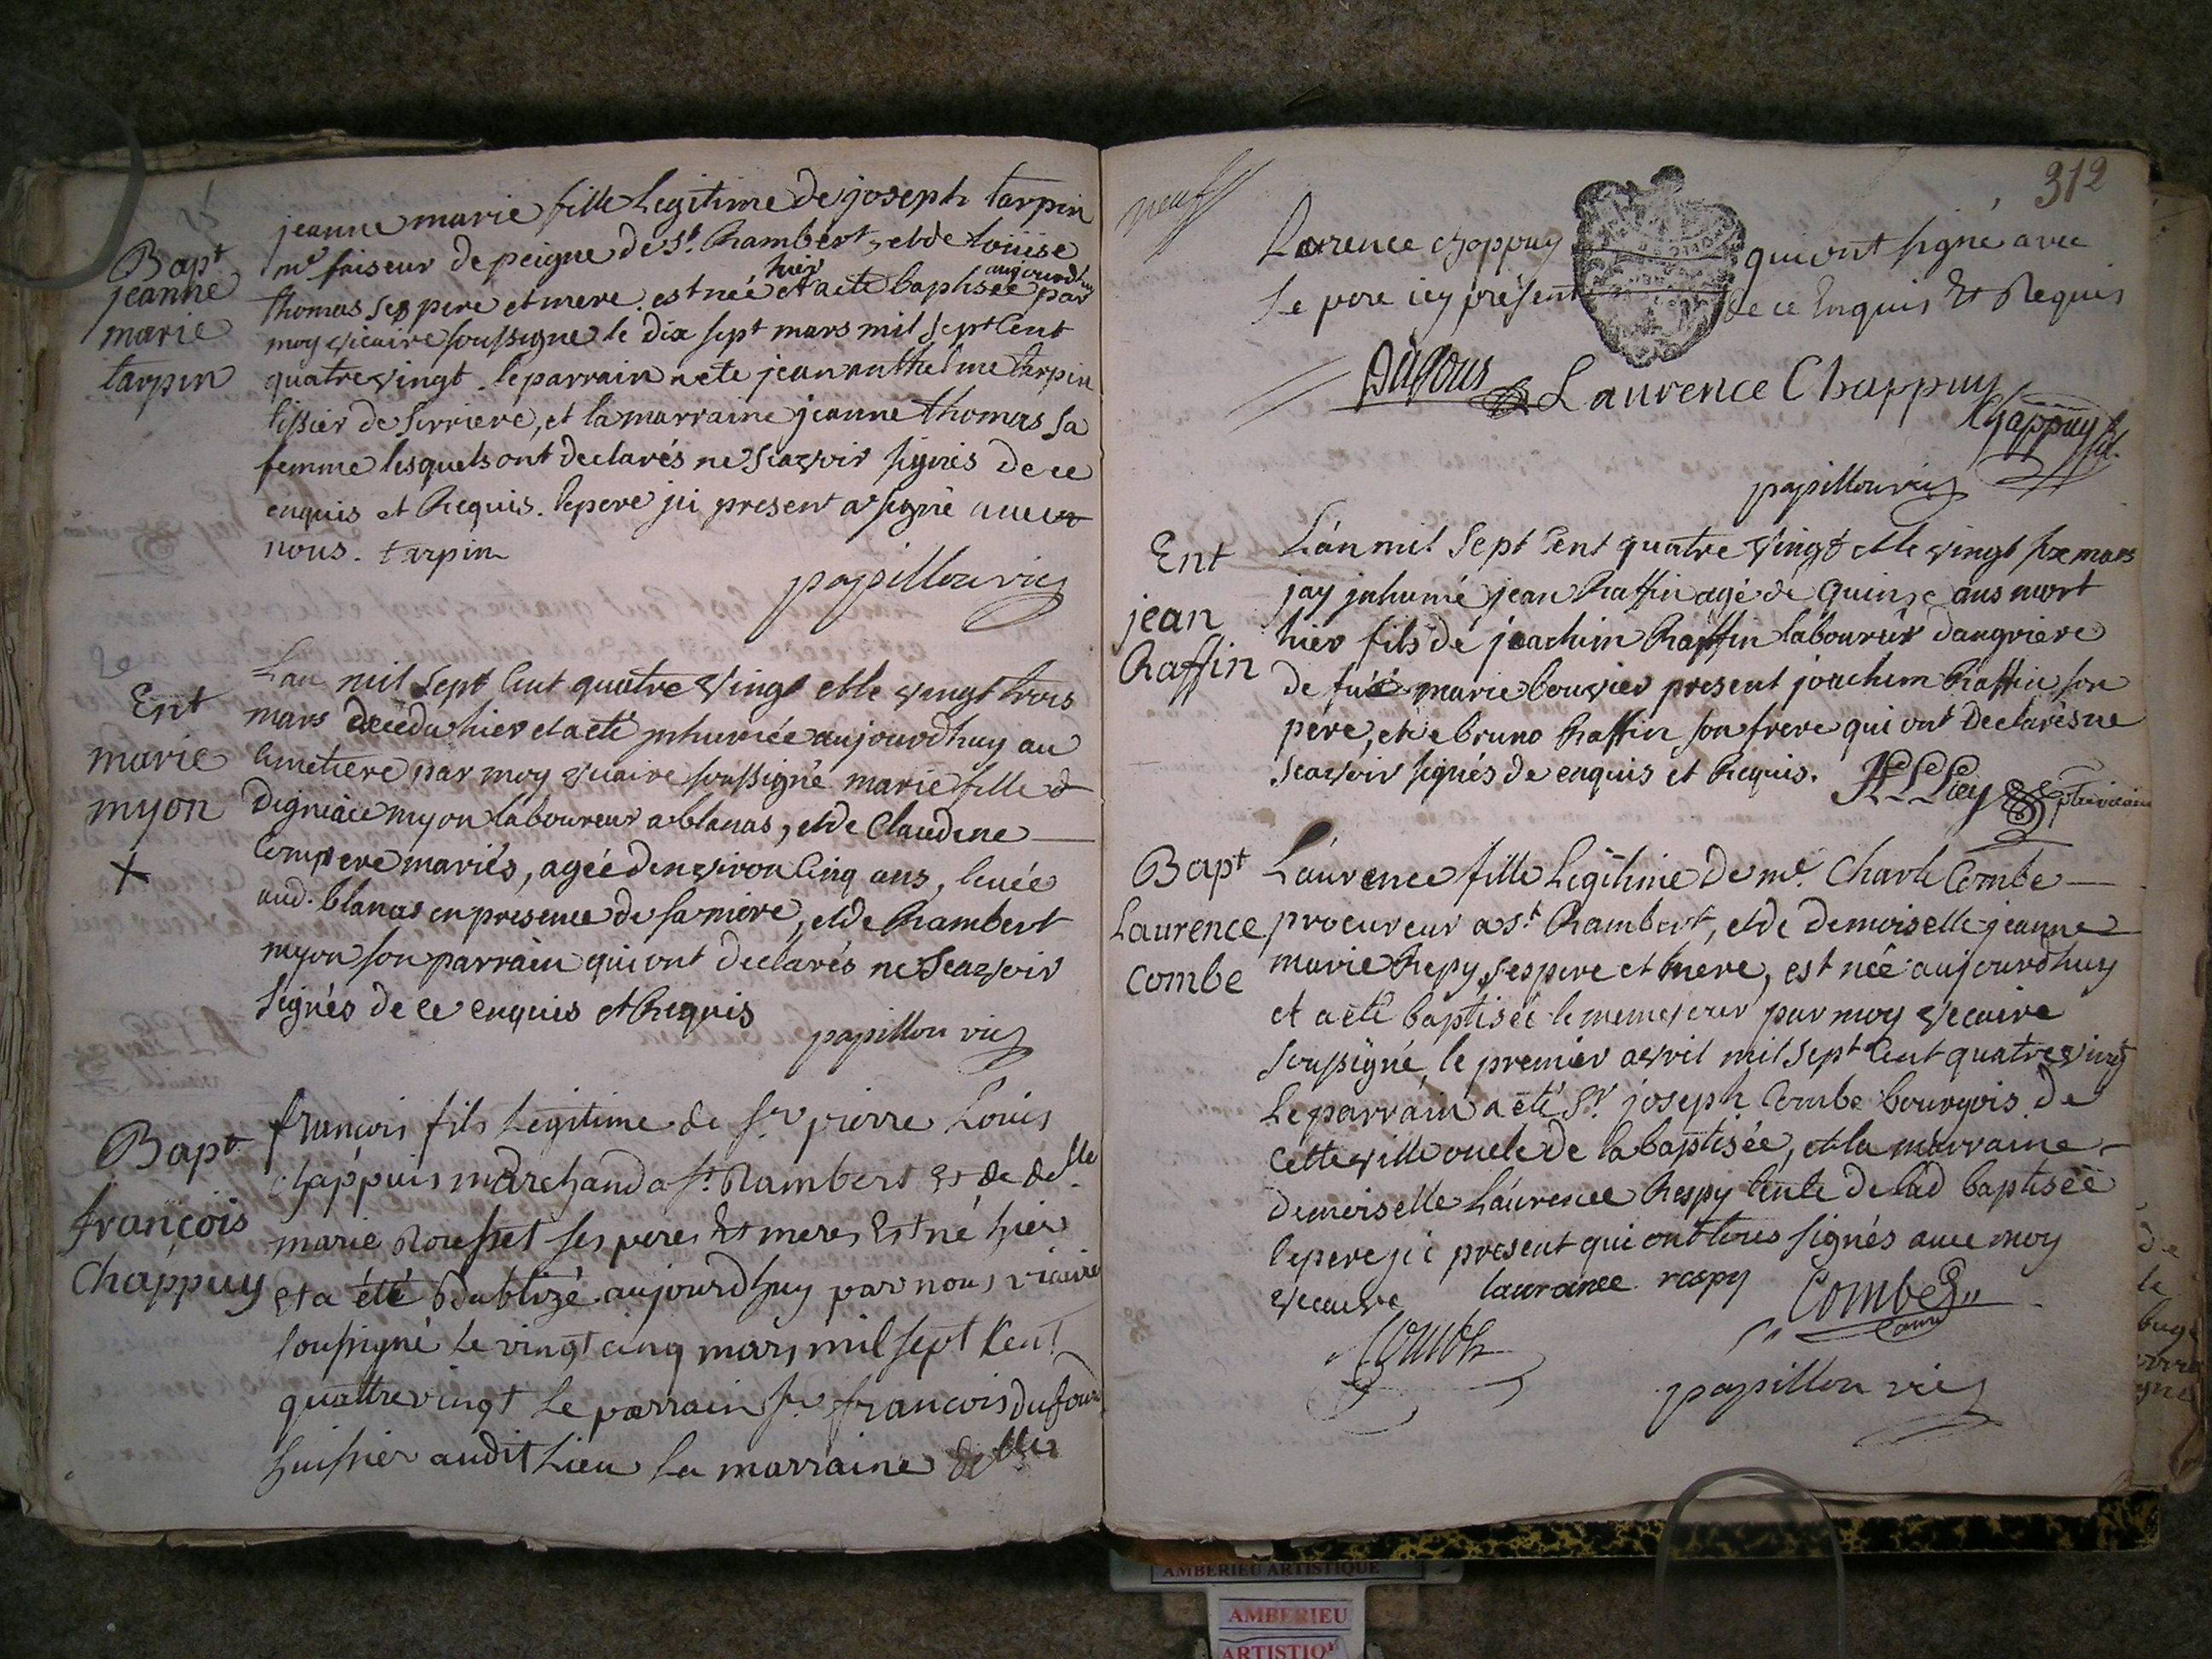 Bapt
jeanne
marie
tarpin
jeanne marie fille Legitime de joseph tarpin
me faiseur de peigne de St. Rambert, et de Loüise
thomas ses pere et mere. est née hier et a eté baptisée aujourdhuy par
moy vicaire soussigne le dix sept mars mil sept Cent
quatre vingt. le parrain a ete jean anthelme tarpin
tissier de Serriere, et la marraine jeanne thomas sa
femme lesquels ont declarés ne Scavoir signés de ce
enquis et Requis. le pere ici present a signé avec
nous. tarpin
papillon vic
Ent
marie
myon
+
Lan mil Sept Cent quatre vingt et le vingt trois
mars decedu hier et a eté inhumée aujourdhuy au
Cimetiere par moy vicaire soussigné marie fille
digniace myon laboureur a blanas, et de Claudine
Compere mariés, agée denviron Cinq ans,
aud. blanas en presence de sa mere, et de Rambert
myon son parrain qui ont declarés ne Scavoir
Signés de ce enquis et Requis
papillon vic
Bapt
françois
Chappuy
françois fils Legitime de Sr. pierre Louis
chappuis marchand a St. Rambert Et de delle
marie Rousset ses peres Et meres Est né hier
Et a été Baubtizé aujourdhuy par nous vicaire
soussigné Le vingt cinq mars mil sept Cent
quattre vingt Le parrain Sr. francois dufour
huissier audit Lieu La marraine delle
312
neuf
Laurence chappuy qui ont signé avec
Le pere icy présent de ce Enquis Et Requis
Dufour Laurence Chappuy
Chappuy
papillon vic
Ent
jean
Raffin
L'an mil Sept Cent quatre vingt et le vingt six mars
jay inhumé jean Raffin agé de quinse ans mort
hier fils de joachim Raffin laboureur dangriere
de fuë marie bouvier present joachim Raffin son
père, et de bruno Raffin son frere qui ont declarés ne
Scavoir signés de enquis et Requis.
Bapt
Laurence
Combe
Laurence fille Legitime de me. Charle Combe
procureur a St. Rambert, et de demoiselle jeanne
marie Repy, ses pere et mere, est née aujourdhuy
et a eté baptisée le meme jour par moy vecaire
soussigné, le premier avril mil sept Cent quatre vingt
Le parrain a eté Sr. joseph Combe bourgois de
cette ville oncle de la baptisée, et la marraine
demoiselle Laurence Respy tente de lad baptisée
le pere ici present qui ont tous signés avec moy
vecaire laurance raspy Combe
Combe
papillon vic
de
le
AMBERIEU ARTISTIQUE
AMBERIEU